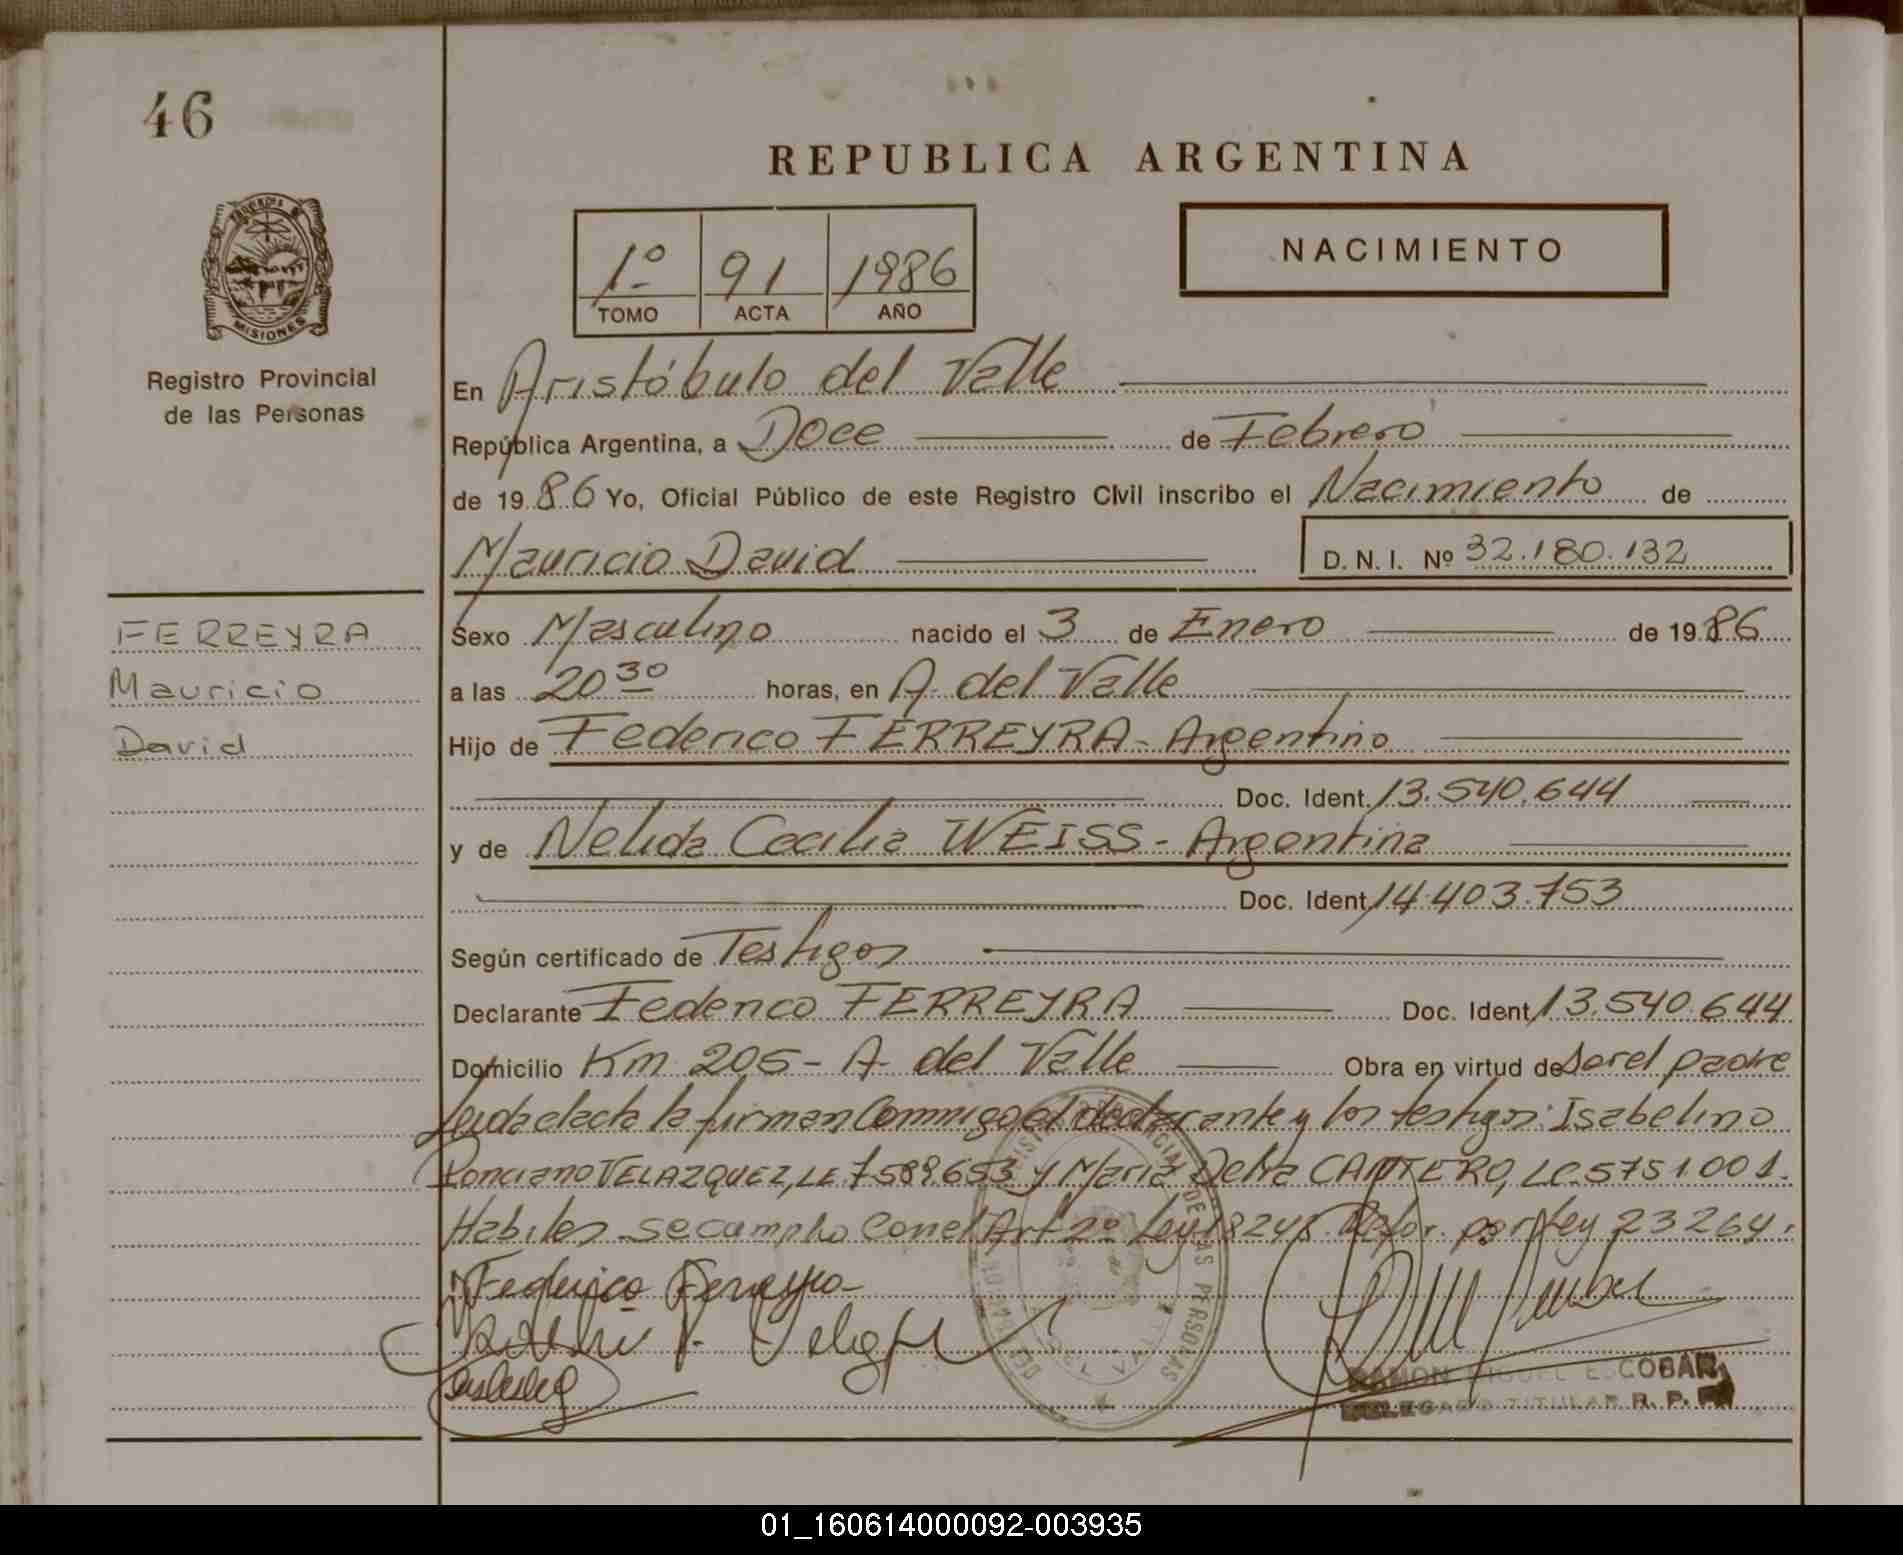 46
REPUBLICA ARGENTINA
1º 91 1986
TOMO ACTA AÑO
NACIMIENTO
MISIONES
Registro Provincial
de las Personas
En Aristóbulo del Valle
República Argentina, a Doce de Febrero
de 1986 Yo, Oficial Público de este Registro Civil inscribo el Nacimiento de
Mauricio David D. N. I. Nº 32.180.132
FERREYRA
Mauricio
David
Sexo Masculino nacido el 3 de Enero de 1986
a las 20 30 horas, en A. del Valle
Hijo de Federico FERREYRA - Argentino
Doc. Ident. 13.540.644
y de Nelida Cecilia WEISS - Argentina
Doc. Ident. 14.403.753
Según certificado de Testigos
Declarante Federico FERREYRA Doc. Ident. 13.540.644
Domicilio Km 205 - A. del Valle Obra en virtud de ser el padre
Leida el acta la firman Conmigo el declarante y los testigos: Isabelino
Ponciano VELAZQUEZ, LE 7589653 y Maria Delia CANTERO, LC. 5751001.
Habiles se cumplio Con el Art 2º Ley 18248 Refor. por Ley 23264.
Federico Ferreyra
RAMON MIGUEL ESCOBAR
DELEGADO TITULAR R. P. P.
01_160614000092-003935